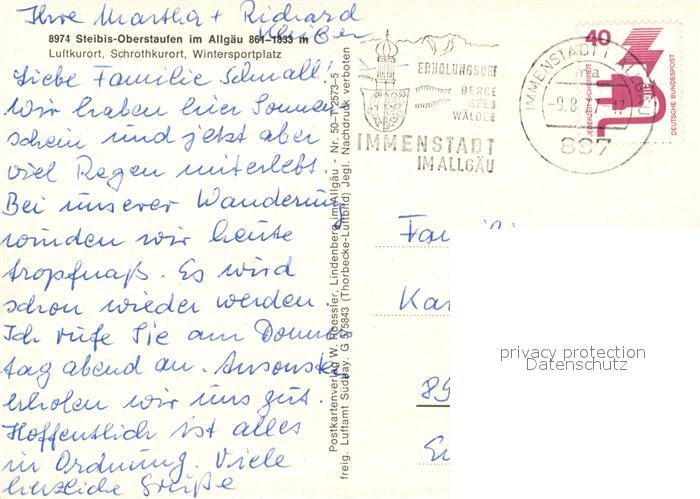 Ihre Martha + Richard
8974 Steibis-Oberstaufen im Allgäu 861–1833 m
Luftkurort, Schrothkurort, Wintersportplatz
Liebe Familie Schnall!
Wir haben hier Sonnen
schein und jetzt aber
viel Regen miterlebt.
Bei unserer Wanderung
wurden wir heute
tropfnaß. Es wird
schon wieder werden.
Ich rufe Sie am Donners
tag abend an. Ansonsten
erholen wir uns gut.
Hoffentlich ist alles
in Ordnung. Viele
herzliche Grüße
Postkartenverlag W. Roessler, Lindenberg im Allgäu - Nr. 50 - T 2573-5
freig. Luftamt Südbay. G 5/5843 (Thorbecke-Luftbild) Jegl. Nachdruck verboten
ERHOLUNGSORT
BERGE
SEEN
WÄLDER
IMMENSTADT
IM ALLGÄU
IMMENSTADT
ma
-9.8.
897
40
JEDERZEIT SICHERHEIT
DEUTSCHE BUNDESPOST
Fami
Kar
89
privacy protection
Datenschutz